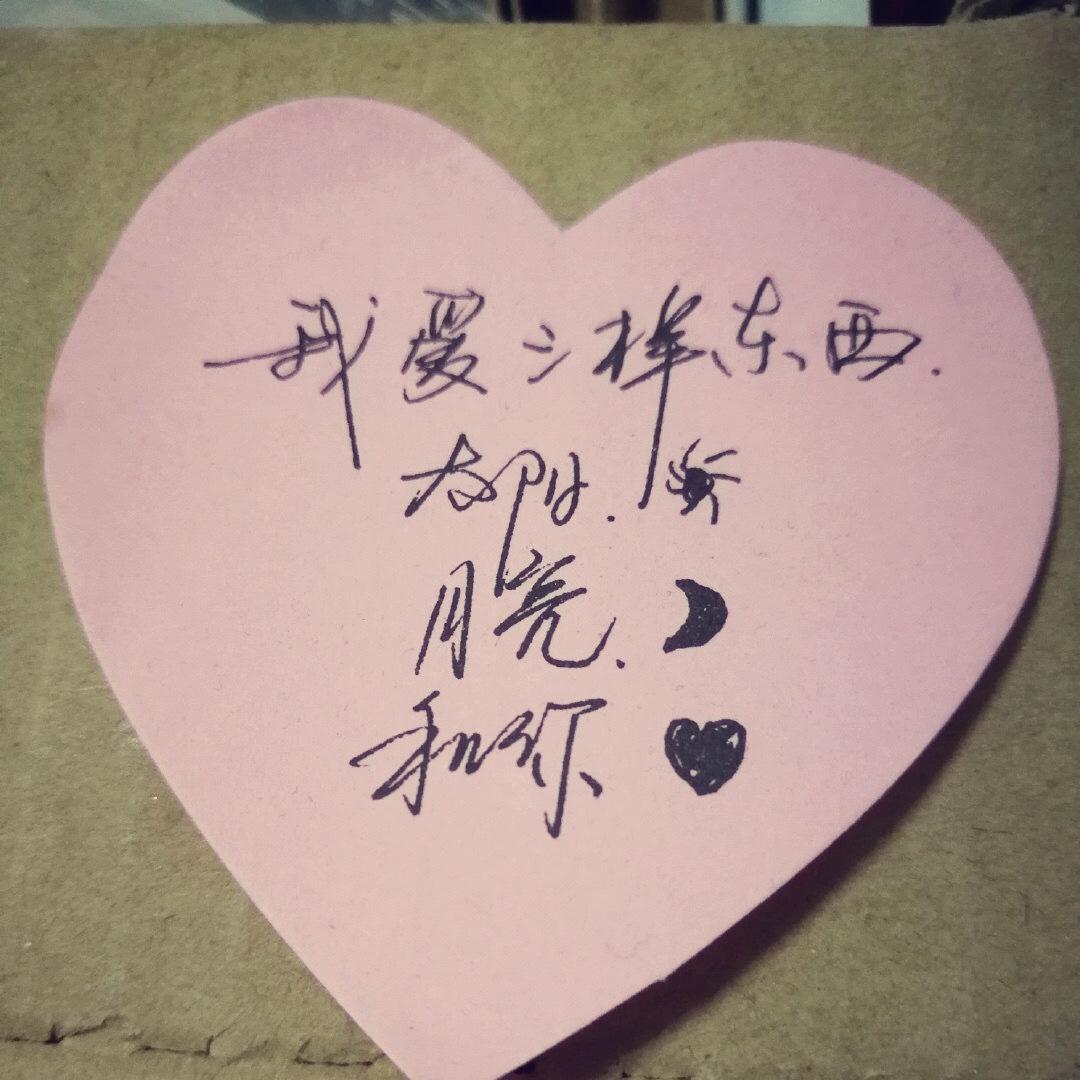 我爱三样东西.
太阳.
月亮.
和你